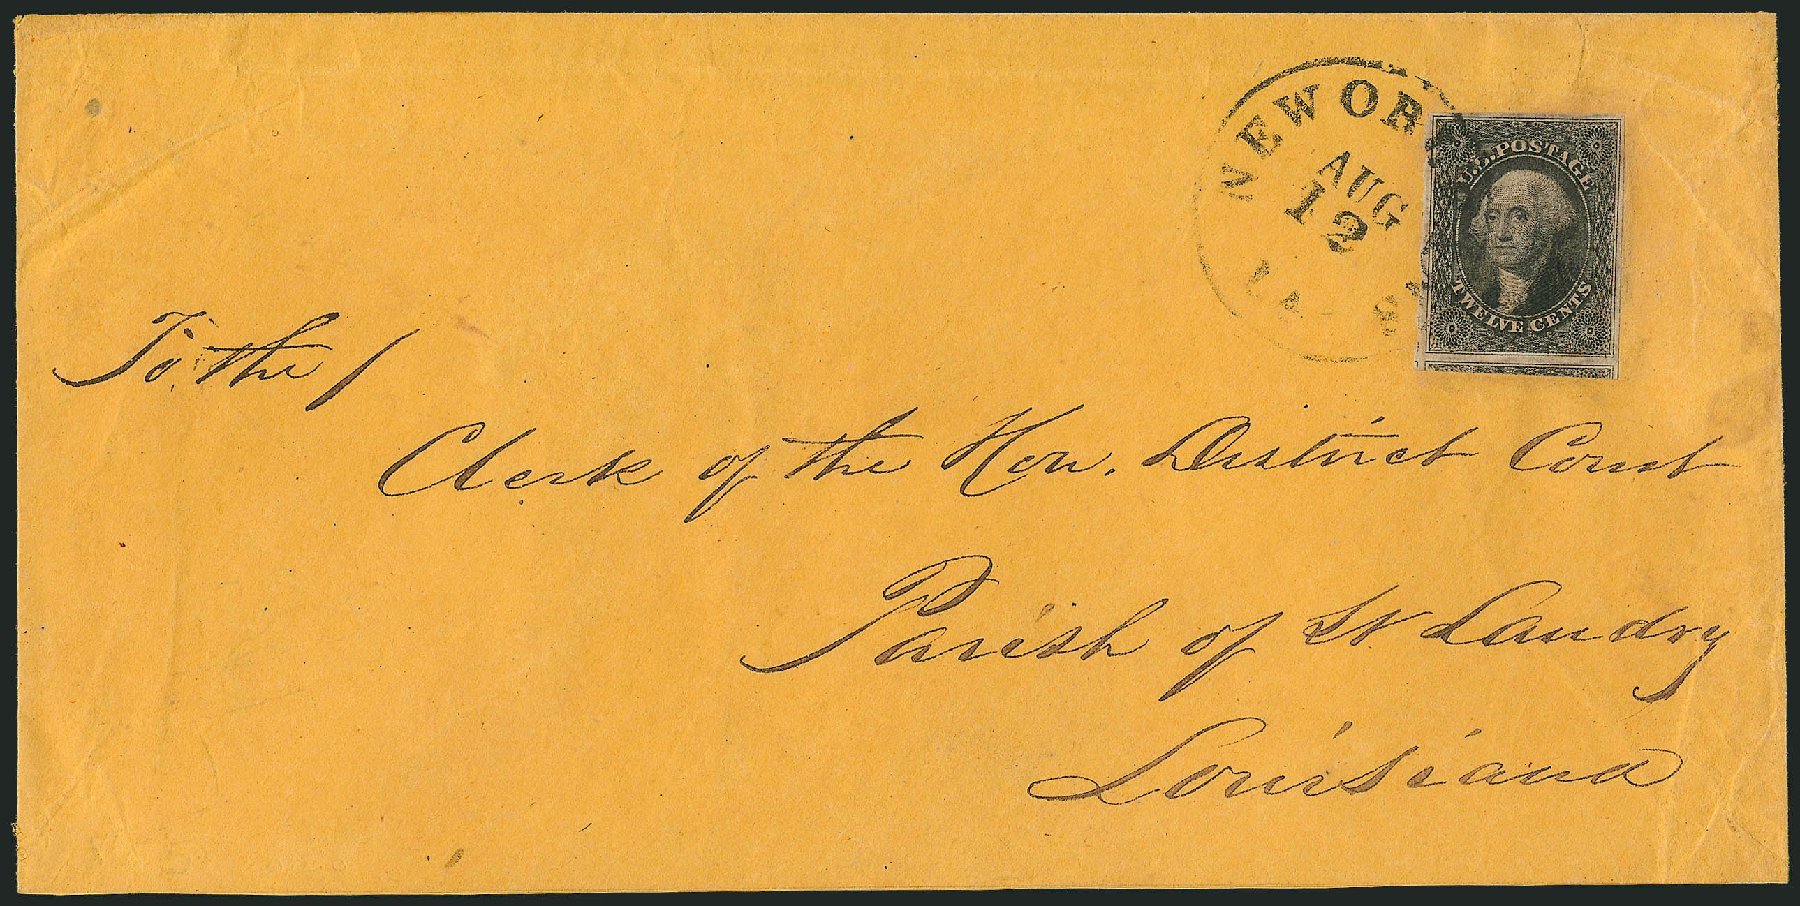 NEW OR
AUG
12
LA.
U.S. POSTAGE
TWELVE CENTS
To the /
Clerk of the Hon. District Court
Parish of St Landry
Louisiana